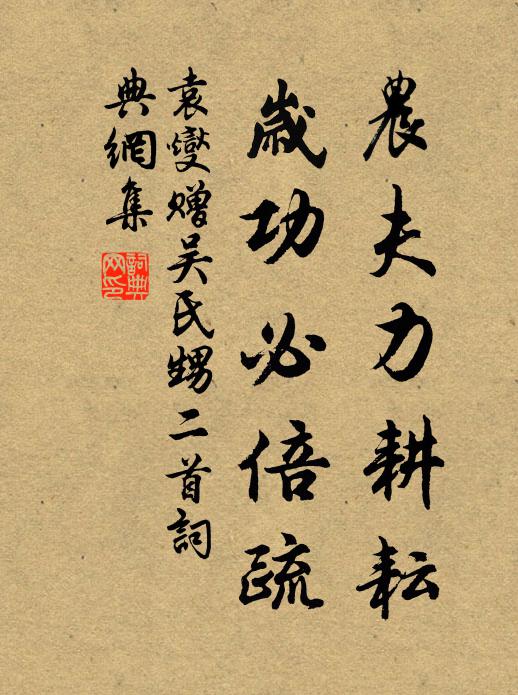 農夫力耕耘
歲功必倍疏
袁燮贈吳氏甥二首詞
典網集
詞典
网印